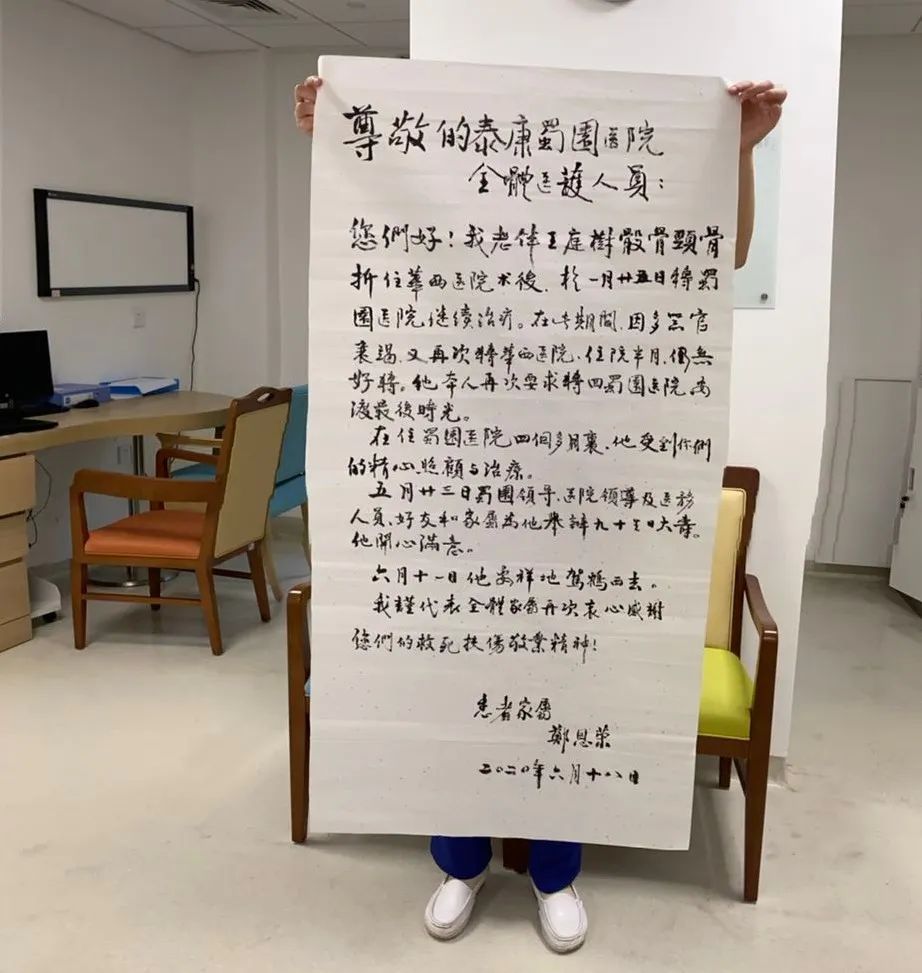 尊敬的泰康蜀園医院
全體医護人員：
您們好！我老伴王庭樹股骨頸骨
折住華西医院术後，於一月廿五日轉蜀
園医院继续治疗。在此期間，因多器官
衰竭，又再次轉華西医院，住院半月，仍無
好轉。他本人再次要求轉回蜀園医院，安
渡最後時光。
在住蜀園医院四個多月裏，他受到你們
的精心照顧与治療。
五月廿三日蜀園領导、医院領導及医務
人員、好友和家屬為他举辦九十三日大壽。
他開心滿意。
六月十一日他安祥地駕鶴西去。
我謹代表全體家屬再次衷心感謝
您們的救死扶傷敬業精神！
患者家屬
鄭恩荣
二〇二〇年六月十八日